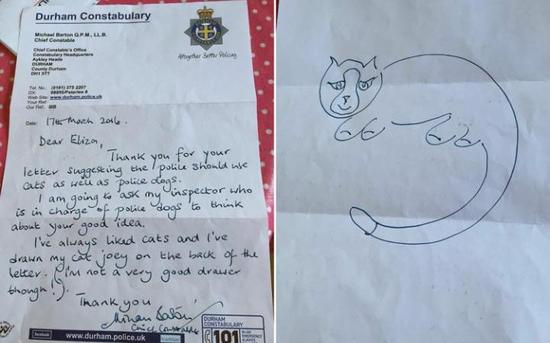 Durham Constabulary
Michael Barton Q.P.M., LL.B.
Chief Constable
Altogether Better Policing
Chief Constable's Office
Constabulary Headquarters
Aykley Heads
DURHAM
County Durham
DH1 5TT
Tel. No.: (0191) 375 2207
Web Site: www.durham.police.uk
Your Ref:
Our Ref: MB
Date: 17th March 2016.
Dear Eliza,
Thank you for your
letter suggesting the police should use
cats as well as police dogs.
I am going to ask my inspector who
is in charge of police dogs to think
about your good idea.
I've always liked cats and I've
drawn my cat joey on the back of the
letter. (I'm not a very good drawer
though!).
Thank you
Chief Constable
facebook
www.durham.police.uk
DURHAM
CONSTABULARY
101